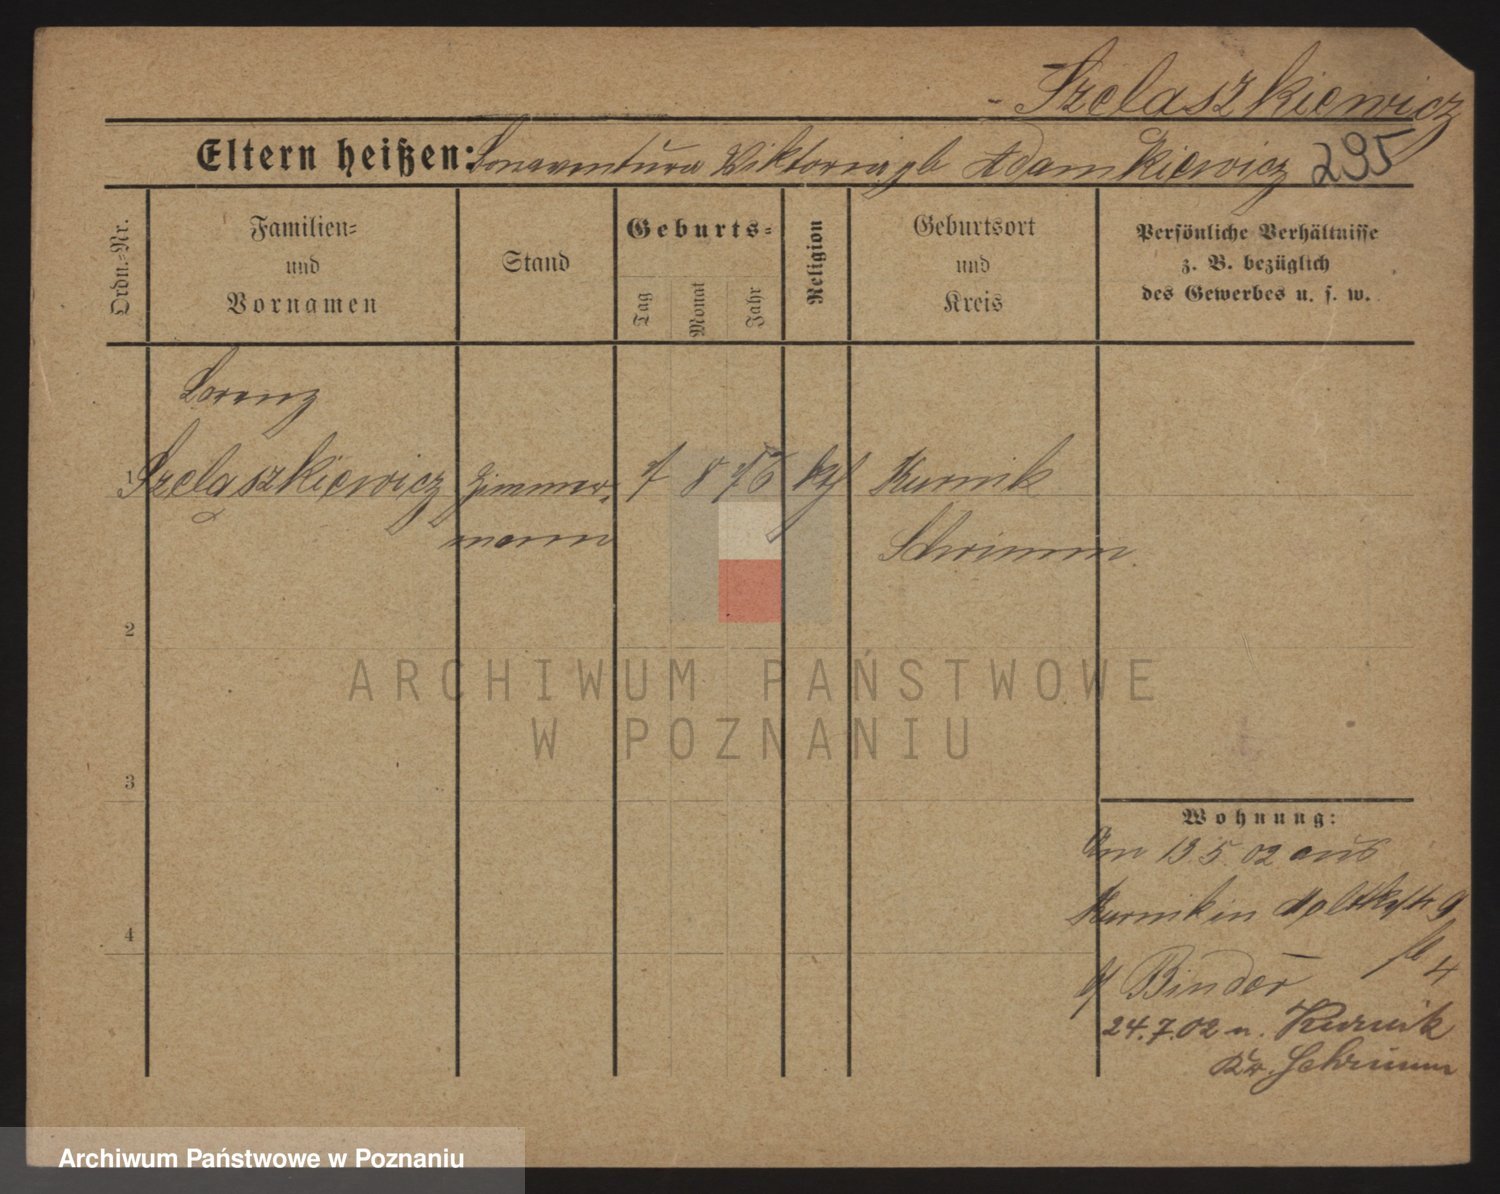 Szelaszkiewicz
Eltern heißen: Bonaventura Viktoria gb Adamkiewicz 295
Ordn.-Nr.
Familien-
und
Vornamen
Stand
Geburts-
Tag
Monat
Jahr
Religion
Geburtsort
und
Kreis
Persönliche Verhältnisse
z. B. bezüglich
des Gewerbes u. s. w.
Lorenz
1 Szelaszkiewicz Zimmer- 7 8 76 kth Kurnik
mann Schrimm
2
ARCHIWUM PAŃSTWOWE
W POZNANIU
3
Wohnung:
Am 13 5. 02 aus
Kurnik in Moltkestr 9
4
b/ Binder 4
24.7.02 n. Kurnik
Kr. Schrimm
Archiwum Państwowe w Poznaniu